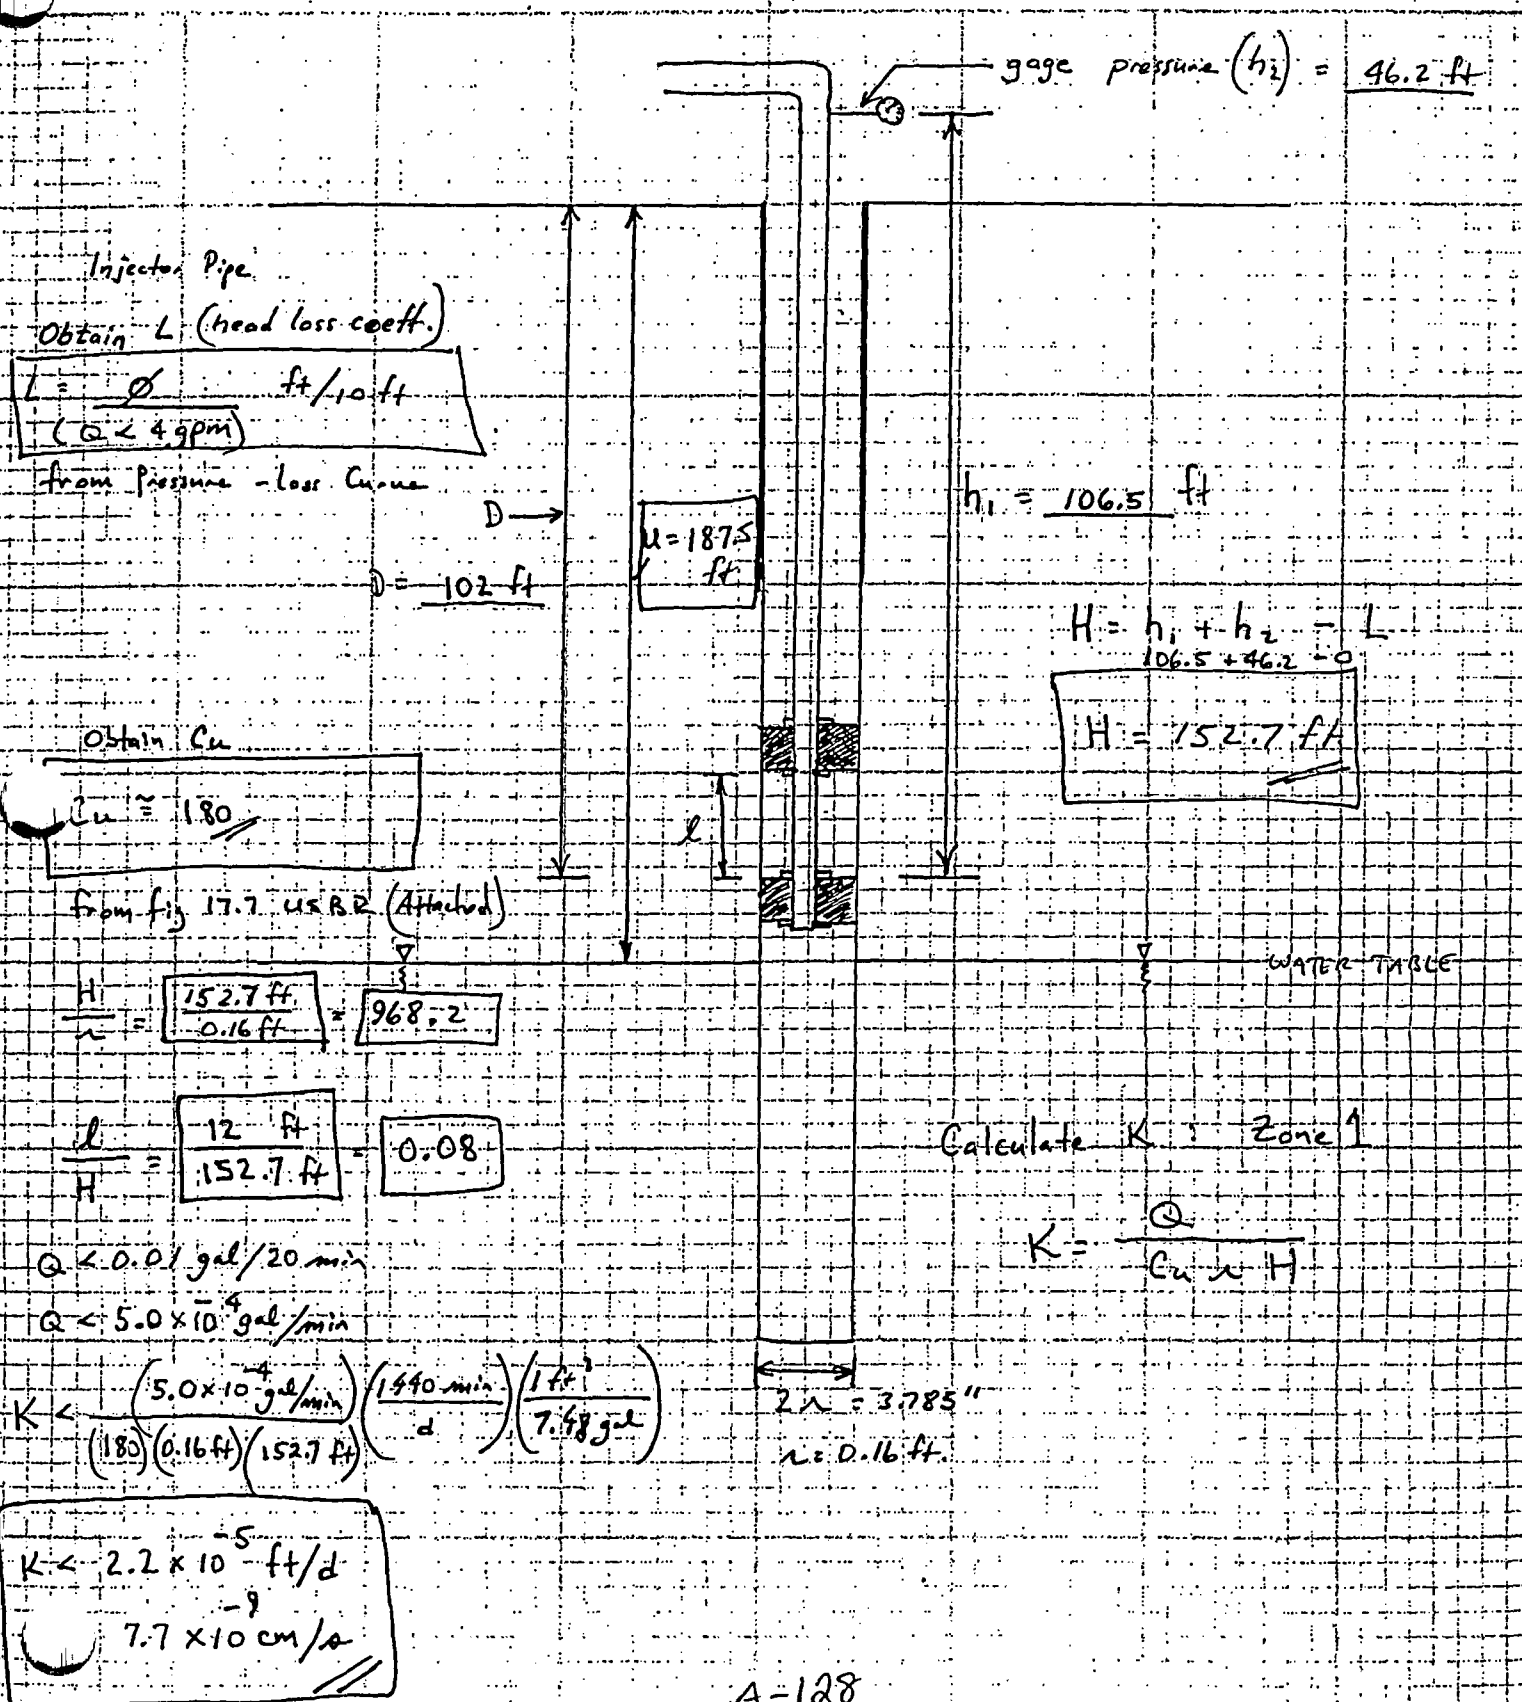 gage pressure (h₂) = 46.2 ft
Injector Pipe
Obtain L (head loss coeff.)
L = Ø ft/10 ft
(Q < 4 gpm)
from Pressure - Loss Curve
D
D = 102 ft
U = 187.5
ft
h₁ = 106.5 ft
H = h₁ + h₂ - L
106.5 + 46.2 - 0
H = 152.7 ft
Obtain Cu
Cu ≅ 180
from fig 17.7 USBR (Attached)
l
WATER TABLE
H/r = 152.7 ft/0.16 ft = 968.2
l/H = 12 ft/152.7 ft = 0.08
Calculate K : Zone 1
K = Q/Cu r H
Q < 0.01 gal/20 min
Q < 5.0 x 10⁻⁴ gal/min
K < (5.0 x 10⁻⁴ gal/min)/(180)(0.16 ft)(152.7 ft) (1440 min/d) (1 ft³/7.48 gal)
2r = 3.785"
r = 0.16 ft.
K < 2.2 x 10⁻⁵ ft/d
7.7 x 10⁻⁹ cm/s
A-128